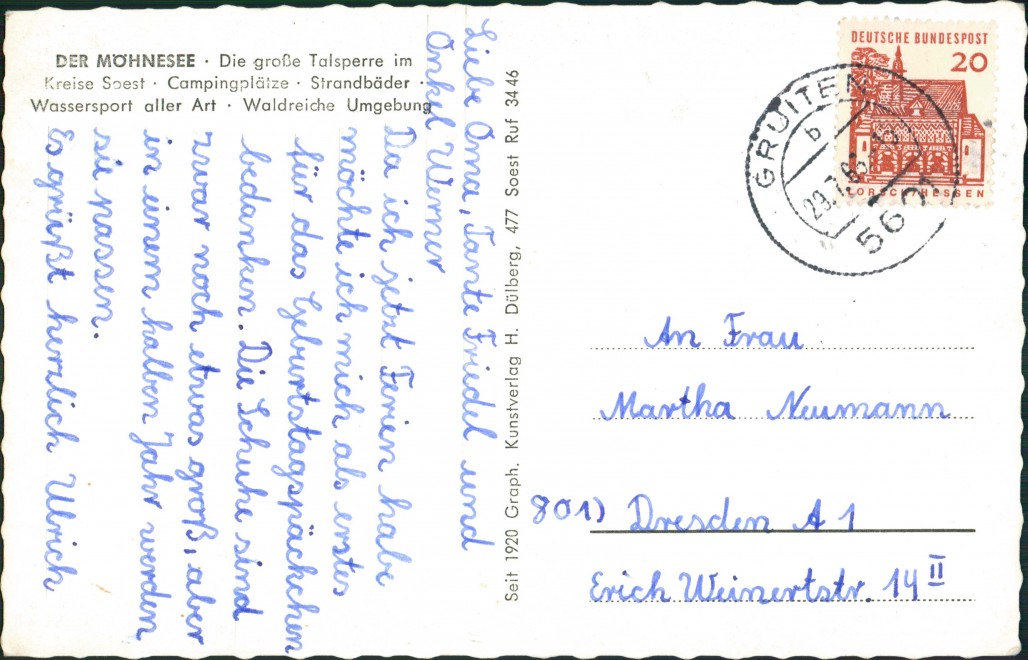 DER MÖHNESEE · Die große Talsperre im
Kreise Soest · Campingplätze · Strandbäder ·
Wassersport aller Art · Waldreiche Umgebung
Liebe Oma, Tante Friedel und
Onkel Werner
Da ich jetzt Ferien habe
möchte ich mich als erstes
für das Geburtstagspäckchen
bedanken. Die Schuhe sind
zwar noch etwas groß, aber
in einem halben Jahr werden
sie passen.
Es grüßt herzlich Ulrich
Seit 1920 Graph. Kunstverlag H. Dülberg, 477 Soest Ruf 34 46
DEUTSCHE BUNDESPOST
20
LORSCH HESSEN
GRUITEN
b
29.7.
5601
An Frau
Martha Neumann
801) Dresden A 1
Erich Weinertstr. 14 II